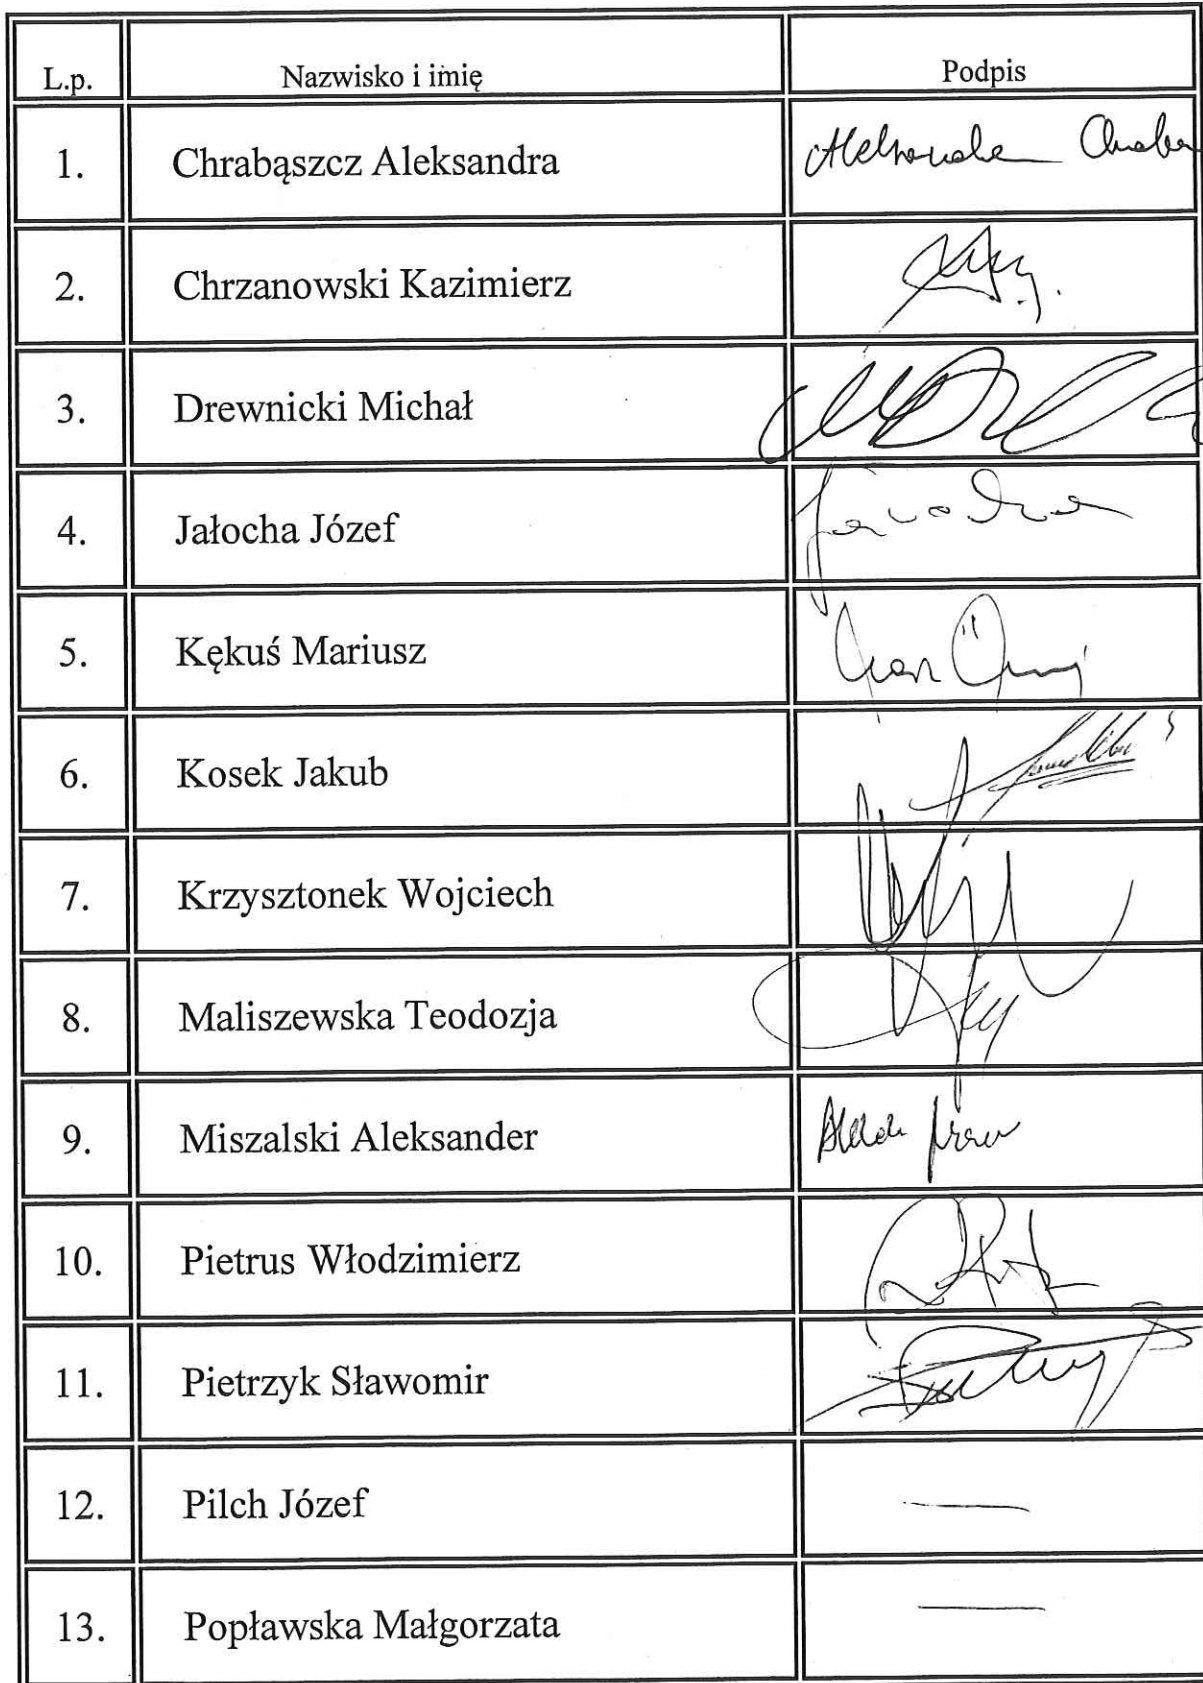 L.p. Nazwisko i imię Podpis
1. Chrabąszcz Aleksandra
2. Chrzanowski Kazimierz
3. Drewnicki Michał
4. Jałocha Józef
5. Kękuś Mariusz
6. Kosek Jakub
7. Krzysztonek Wojciech
8. Maliszewska Teodozja
9. Miszalski Aleksander
10. Pietrus Włodzimierz
11. Pietrzyk Sławomir
12. Pilch Józef —
13. Popławska Małgorzata —